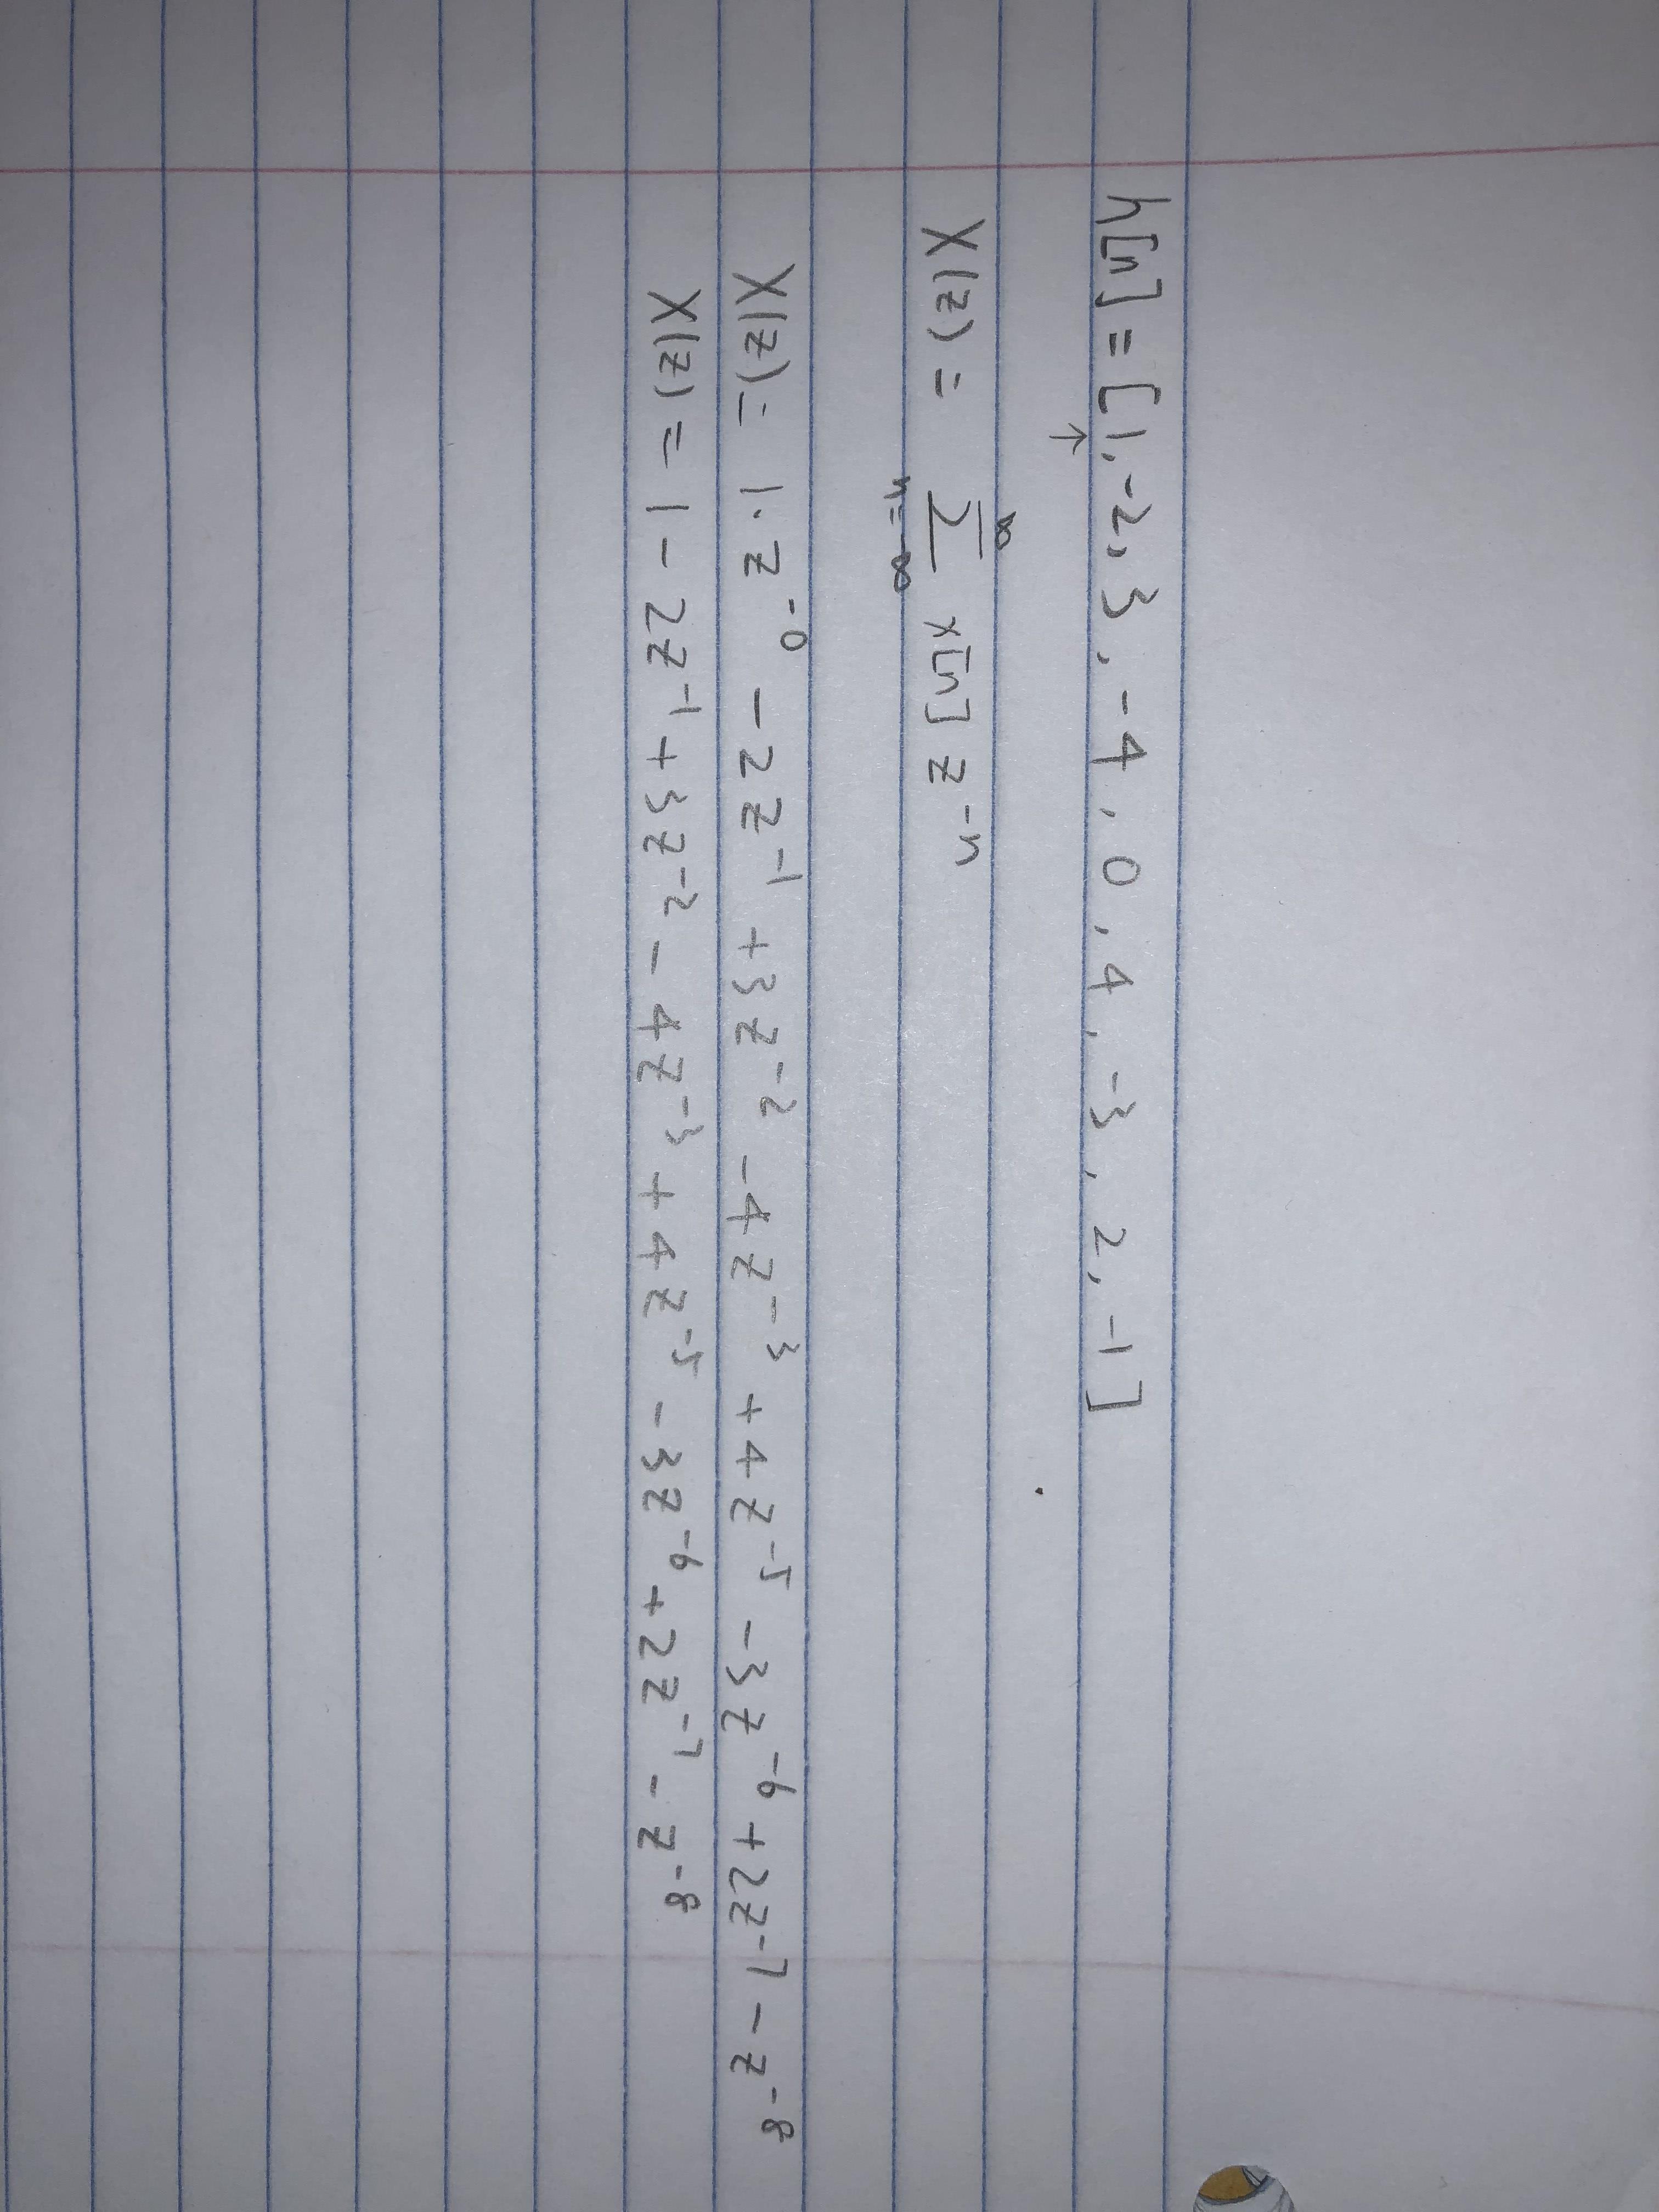 h[n] = [1, -2, 3, -4, 0, 4, -3, 2, -1]
↑
X(z) = ∞ Σ n=-∞ x[n] z^-n
X(z) = 1·z^-0 - 2z^-1 + 3z^-2 - 4z^-3 + 4z^-5 - 3z^-6 + 2z^-7 - z^-8
X(z) = 1 - 2z^-1 + 3z^-2 - 4z^-3 + 4z^-5 - 3z^-6 + 2z^-7 - z^-8